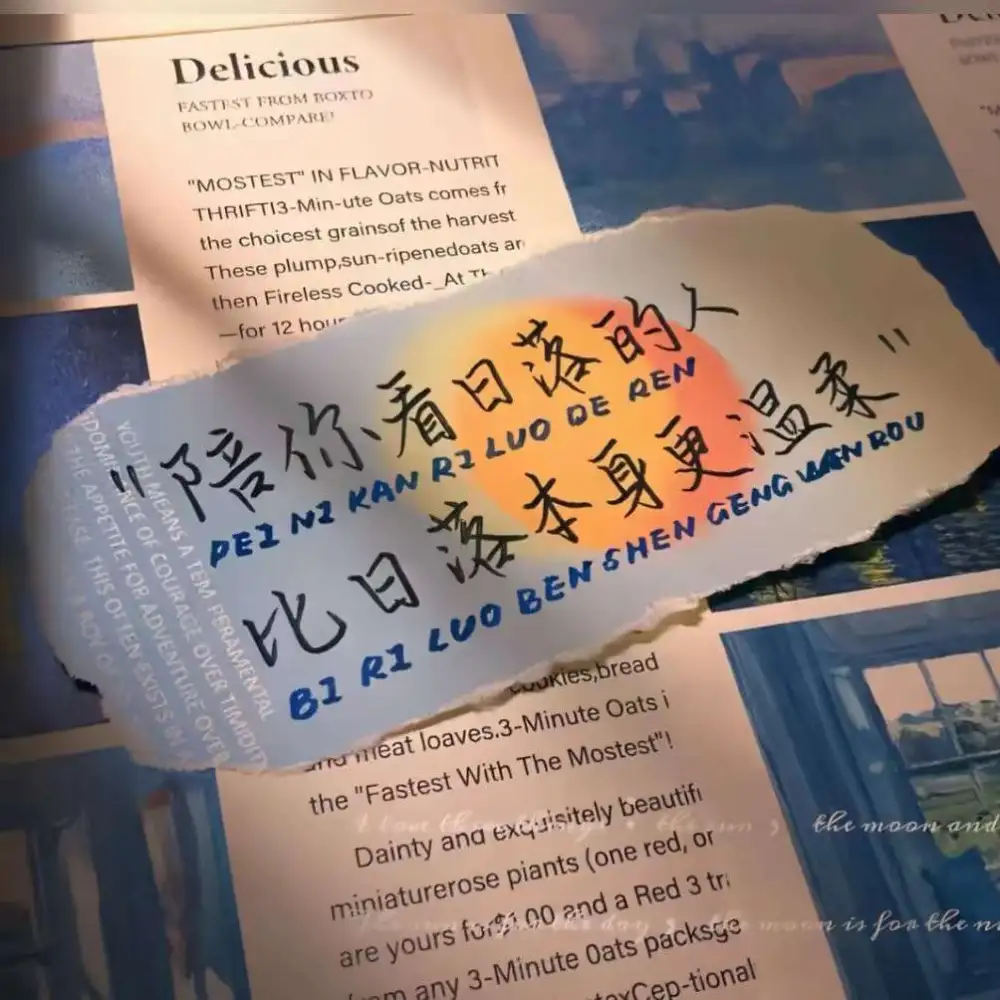 Delicious
FASTEST FROM BOXTO
BOWL-COMPARE!
"MOSTEST" IN FLAVOR-NUTRIT
THRIFTI3-Min-ute Oats comes fr
the choicest grainsof the harvest
These plump,sun-ripenedoats ar
then Fireless Cooked-_At Th
—for 12 hour
"陪你看日落的人
PEI NI KAN RI LUO DE REN
比日落本身更温柔"
BI RI LUO BEN SHEN GENG WEN ROU
YOUTH MEANS A TEM PERAMENTAL
DOMINANCE OF COURAGE OVER TIMIDITY
THE APPETITE FOR ADVENTURE OVER
EASE. THIS OFTEN EXISTS IN A
BOY O
cookies,bread
and meat loaves.3-Minute Oats i
the "Fastest With The Mostest"!
Dainty and exquisitely beautifi
miniaturerose piants (one red, or
are yours for$1.00 and a Red 3 tr
from any 3-Minute 0ats packsge
Cep-tional
I love three things : the sun , the moon and
the day , the moon is for the ni